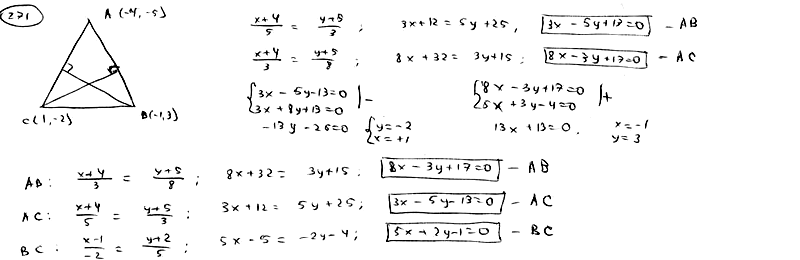 271
A (-4, -5)
C(1, -2) B(-1, 3)
x+4/5 = y+5/3 ; 3x+12 = 5y+25, 3x - 5y - 13=0 - AB
x+4/3 = y+5/8 ; 8x + 32 = 3y+15 ; 8x - 3y+17=0 - AC
{3x - 5y-13=0 |- {8x - 3y+17=0 |+
3x + 8y+13=0 5x + 3y-4=0
-13y - 26=0 {y=-2 13x + 13=0. x=-1
x=+1 y=3
AB: x+4/3 = y+5/8 ; 8x+32 = 3y+15. 8x - 3y+17=0 - AB
AC: x+4/5 = y+5/3 ; 3x+12 = 5y+25; 3x - 5y-13=0 - AC
BC: x-1/-2 = y+2/5 ; 5x-5 = -2y-4; 5x+2y-1=0 - BC